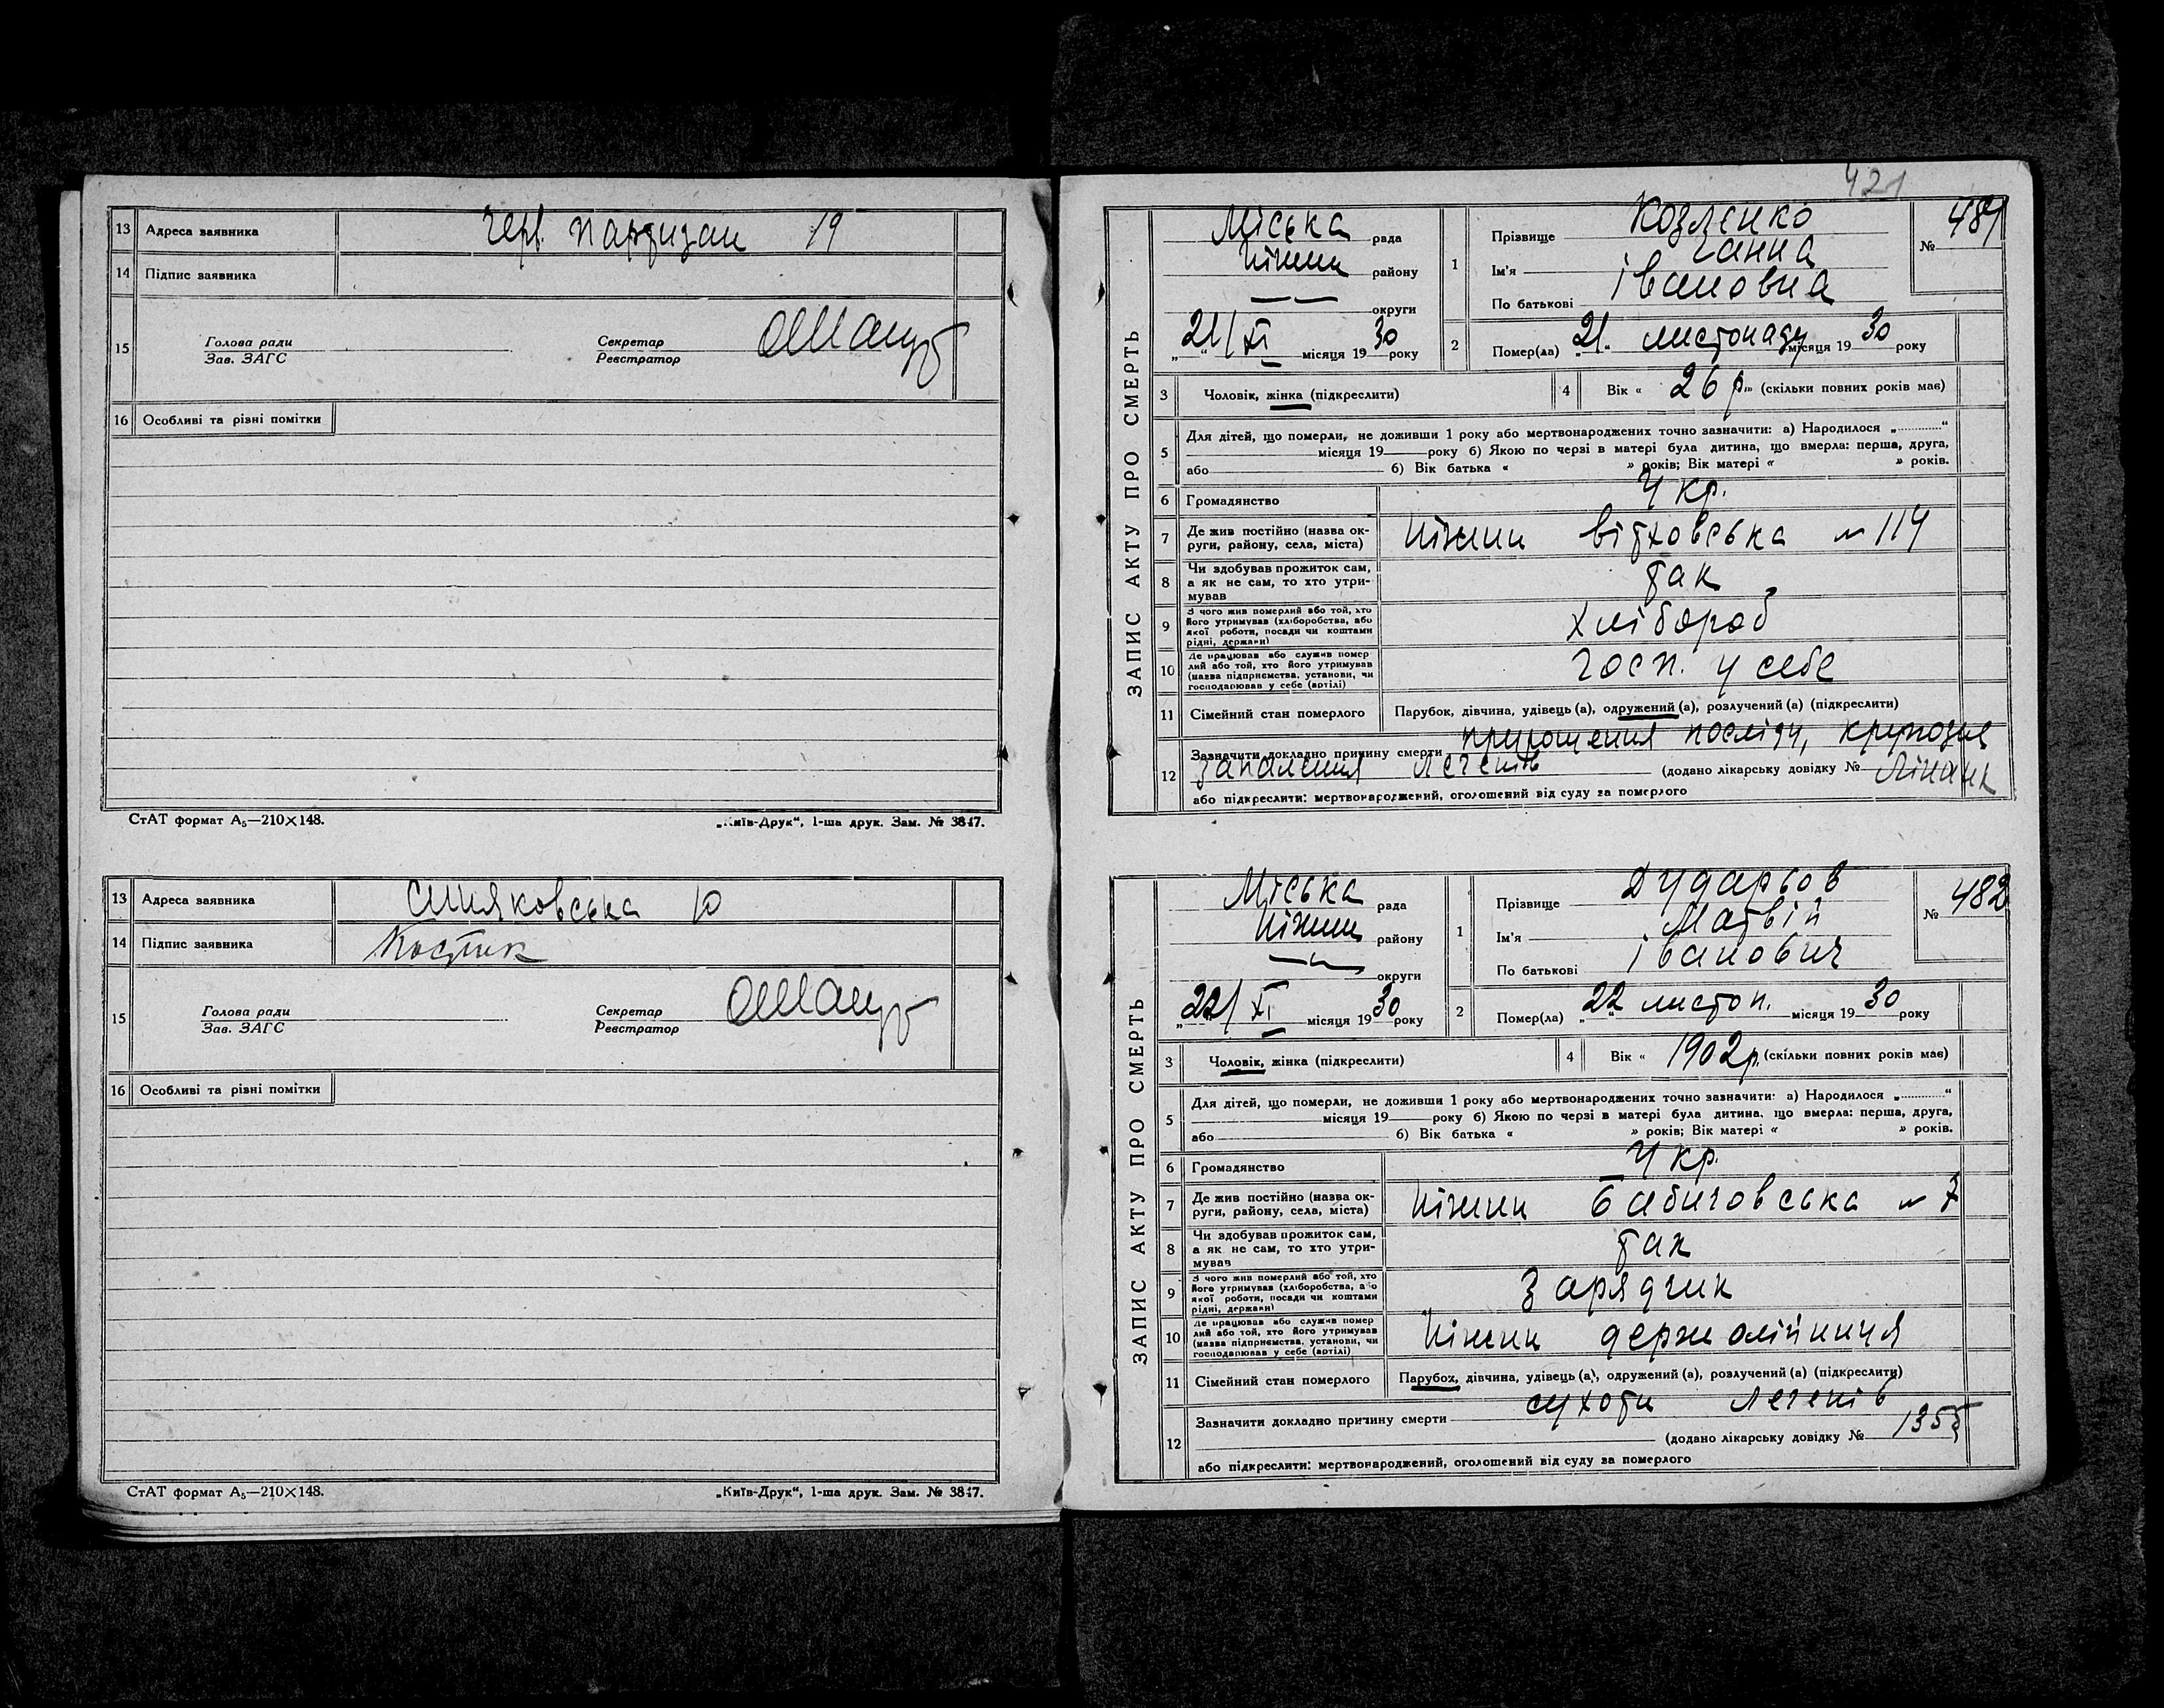 13 Адреса заявника Черв. Партизан 19
14 Підпис заявника
15 Голова ради Секретар
Зав. ЗАГС Реєстратор
16 Особливі та різні помітки
СтАТ формат А₅—210×148. „Київ-Друк“, 1-ша друк. Зам. № 3847.
13 Адреса заявника 10
14 Підпис заявника Костик
15 Голова ради Секретар
Зав. ЗАГС Реєстратор
16 Особливі та різні помітки
СтАТ формат А₅—210×148. „Київ-Друк“, 1-ша друк. Зам. № 3847.
421
ЗАПИС АКТУ ПРО СМЕРТЬ
Міська рада
Ніжин району
округи
„21/XI місяця 1930 року
1 Прізвище Козленко
Ім'я Ганна
По батькові Івановна
№ 481
2 Помер(ла) „21“ листопаду місяця 1930 року
3 Чоловік, жінка (підкреслити)
4 Вік « 26 р.» (скільки повних років має)
5 Для дітей, що померли, не доживши 1 року або мертвонароджених точно зазначити: а) Народилося „............“
місяця 19 року б) Якою по черзі в матері була дитина, що вмерла: перша, друга,
або б) Вік батька « » років; Вік матері « » років.
6 Громадянство Укр.
7 Де жив постійно (назва ок-
руги, району, села, міста) Ніжин № 114
8 Чи здобував прожиток сам,
а як не сам, то хто утри-
мував так
9 З чого жив померлий або той, хто
його утримував (хліборобства, або
якої роботи, посади чи коштами
рідні, держави) хлібороб
10 Де працював або служив помер
лий або той, хто його утримував
(назва підприємства, установи, чи
господарював у себе (артілі) госп. у себе
11 Сімейний стан померлого Парубок, дівчина, удівець (а), одружений (а), розлучений (а) (підкреслити)
12 Зазначити докладно причину смерти прирощення посліду, крупозне
запалення легенів (додано лікарську довідку №
або підкреслити: мертвонароджений, оголошений від суду за померлого
ЗАПИС АКТУ ПРО СМЕРТЬ
Міська рада
Ніжин району
округи
„22/XI місяця 1930 року
1 Прізвище Дударьов
Ім'я Матвій
По батькові Іванович
№ 482
2 Помер(ла) „22“ листоп. місяця 1930 року
3 Чоловік, жінка (підкреслити)
4 Вік « 1902 р. (скільки повних років має)
5 Для дітей, що померли, не доживши 1 року або мертвонароджених точно зазначити: а) Народилося „............“
місяця 19 року б) Якою по черзі в матері була дитина, що вмерла: перша, друга,
або б) Вік батька « » років; Вік матері « » років.
6 Громадянство Укр.
7 Де жив постійно (назва ок-
руги, району, села, міста) Ніжин Бабичовська № 7
8 Чи здобував прожиток сам,
а як не сам, то хто утри-
мував так
9 З чого жив померлий або той, хто
його утримував (хліборобства, або
якої роботи, посади чи коштами
рідні, держави) Зарядчик
10 Де працював або служив помер
лий або той, хто його утримував
(назва підприємства, установи, чи
господарював у себе (артілі) Ніжин держ олійниця
11 Сімейний стан померлого Парубок, дівчина, удівець (а), одружений (а), розлучений (а) (підкреслити)
12 Зазначити докладно причину смерти сухоти легенів
(додано лікарську довідку № 1355
або підкреслити: мертвонароджений, оголошений від суду за померлого